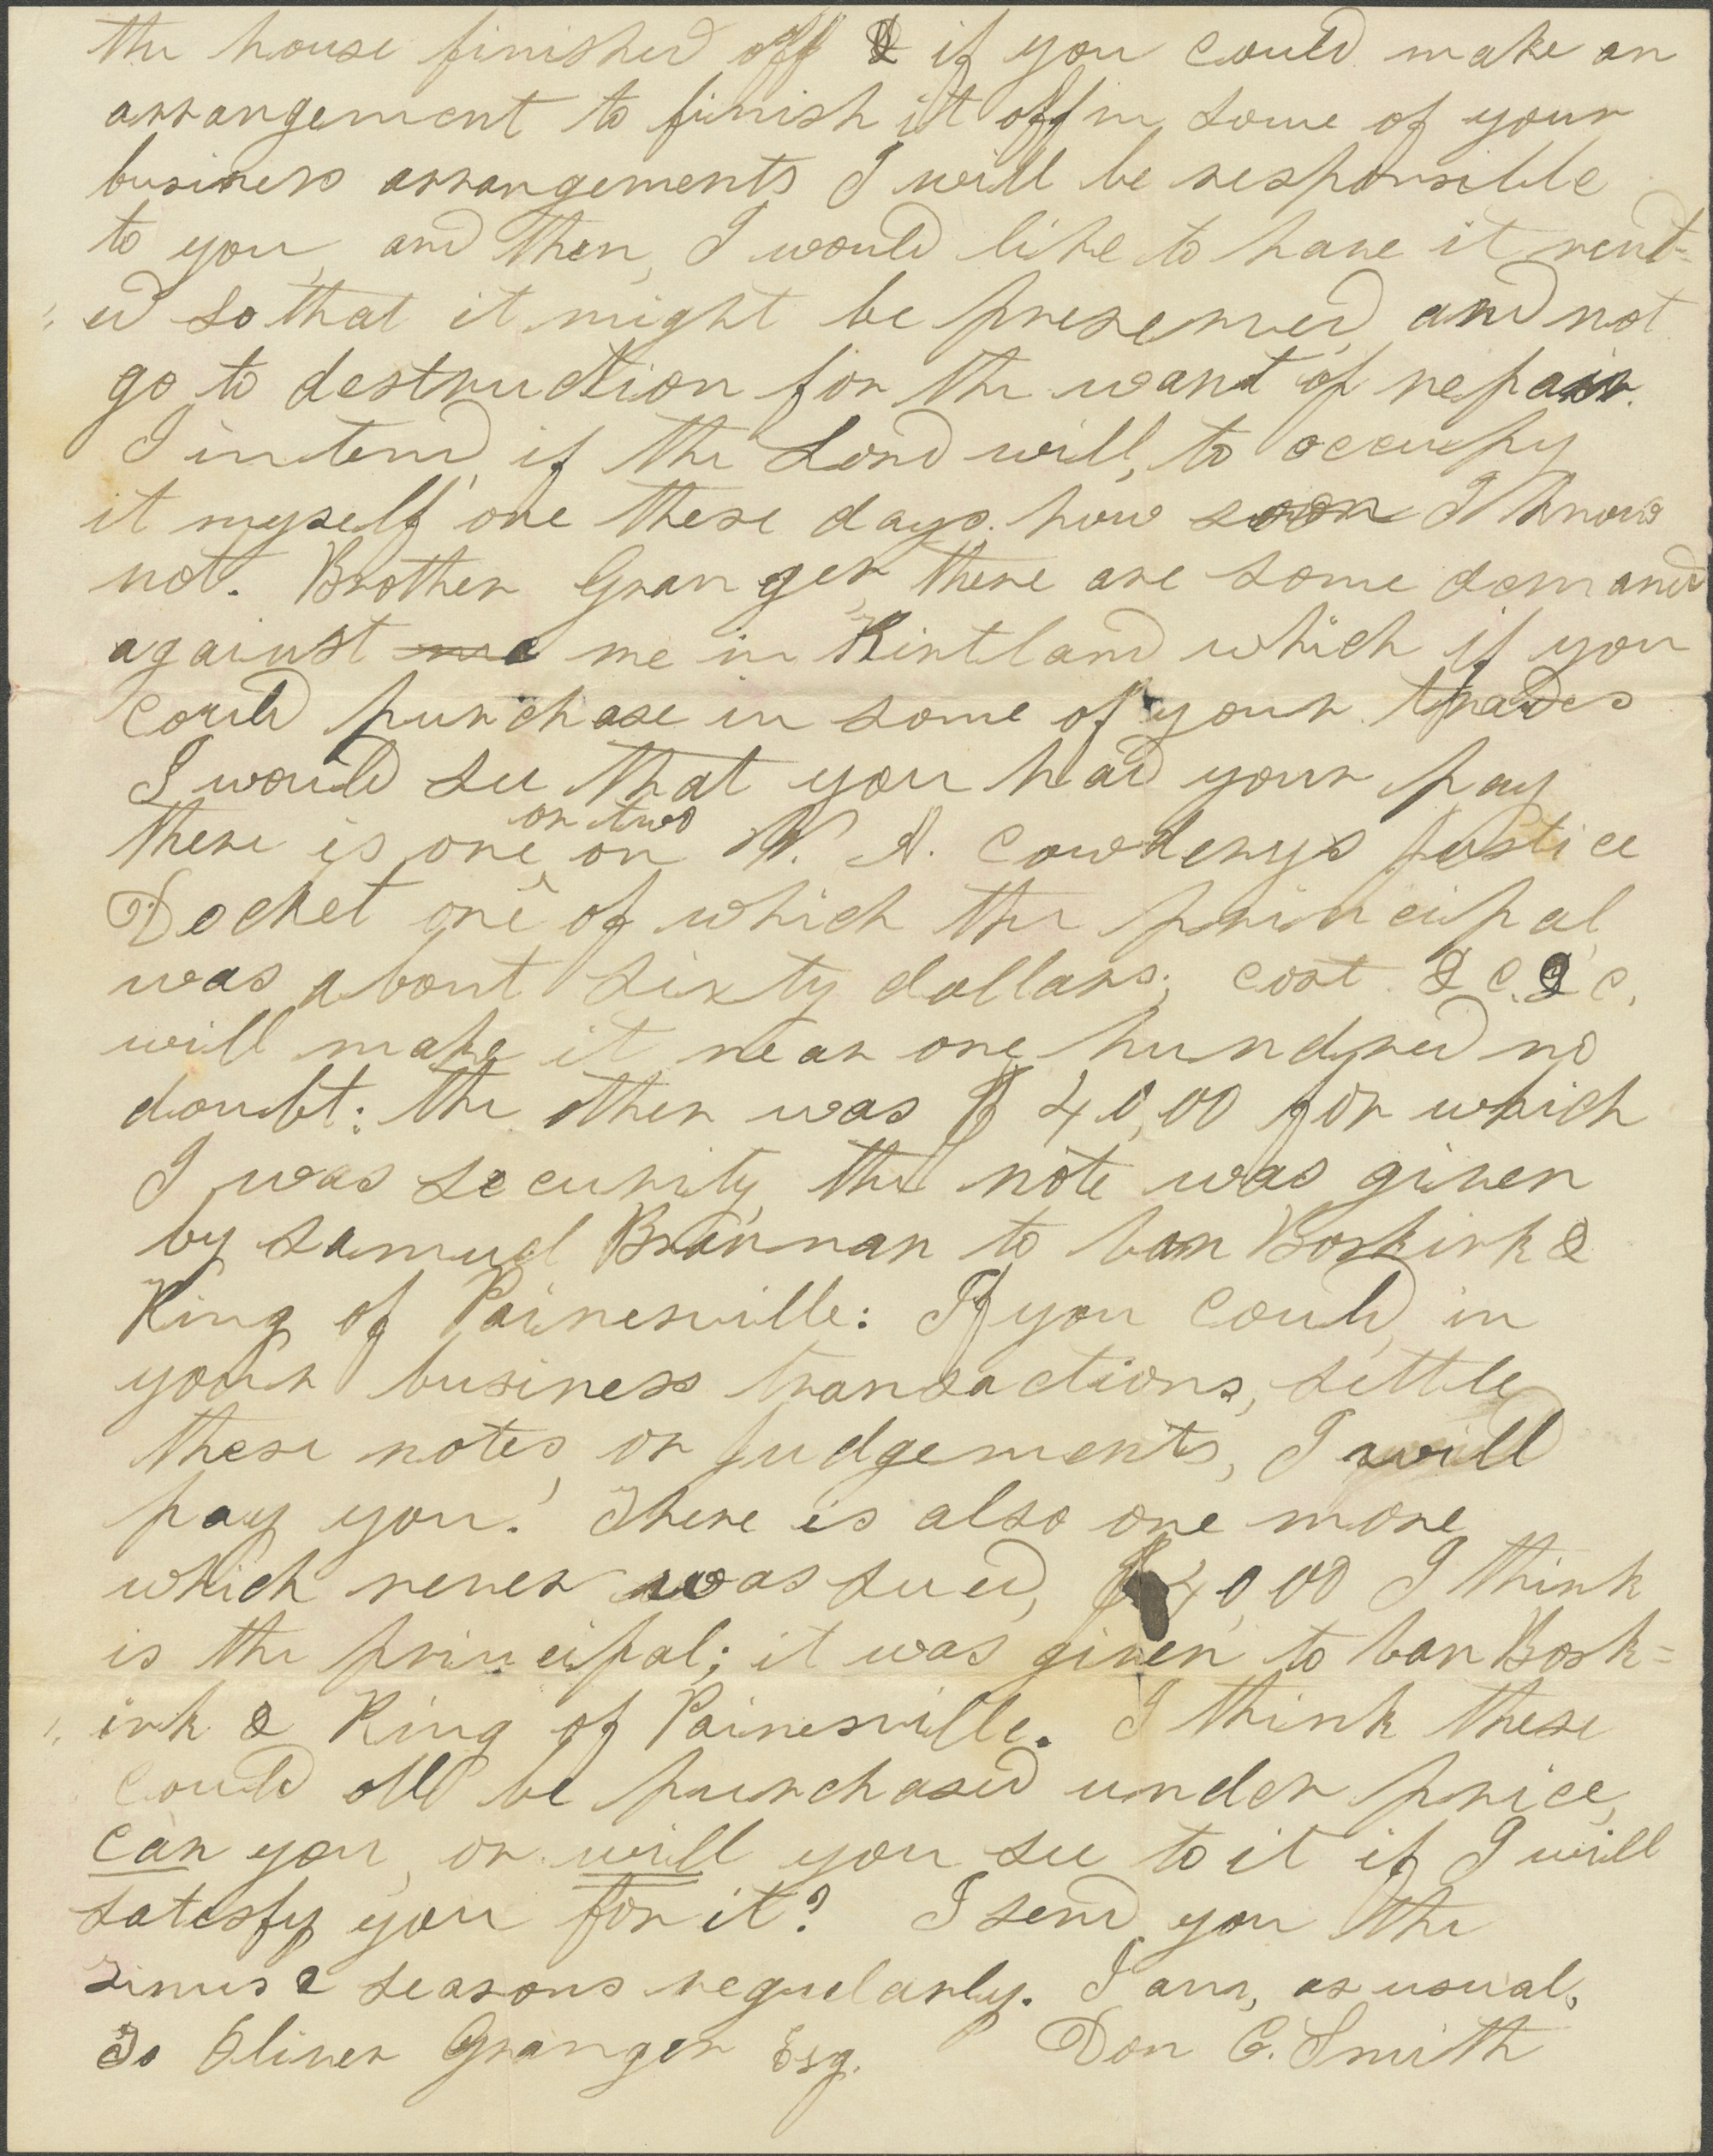 the house finished off & if you could make an
arrangement to finish it off in some of your
business arrangements I will be responsible
to you, and then, I would like to have it rent=
=ed so that it might be preserved, and not
go to destruction for the want of repair.
I intend, if the Lord will, to occupy
it myself one these days. how soon I know
not. Brother Granger, there are some demands
against me me in Kirtland which if you
could purchase in some of your trades
I would see that you had your pay
there is one or two on W. A. Cowderys Justice
Docket one of which the principal
was about sixty dollars; cost &c. &c.
will make it near one hundred no
doubt: the other was $40,00 for which
I was security, the note was given
by Samuel Brannan to Van Boskirk &
King of Painesville: If you could, in
your business transactions, settle
these notes, or judgements, I will
pay you. There is also one more
which never was sued, $40,00 I think
is the principal; it was given to Van Bosk=
=irk & King of Painesville. I think these
could all be purchased under price,
can you, or will you see to it if I will
satesfy you for it? I send you the
Times & seasons regularly. I am, as usual,
To Oliver Granger Esq. Don C. Smith